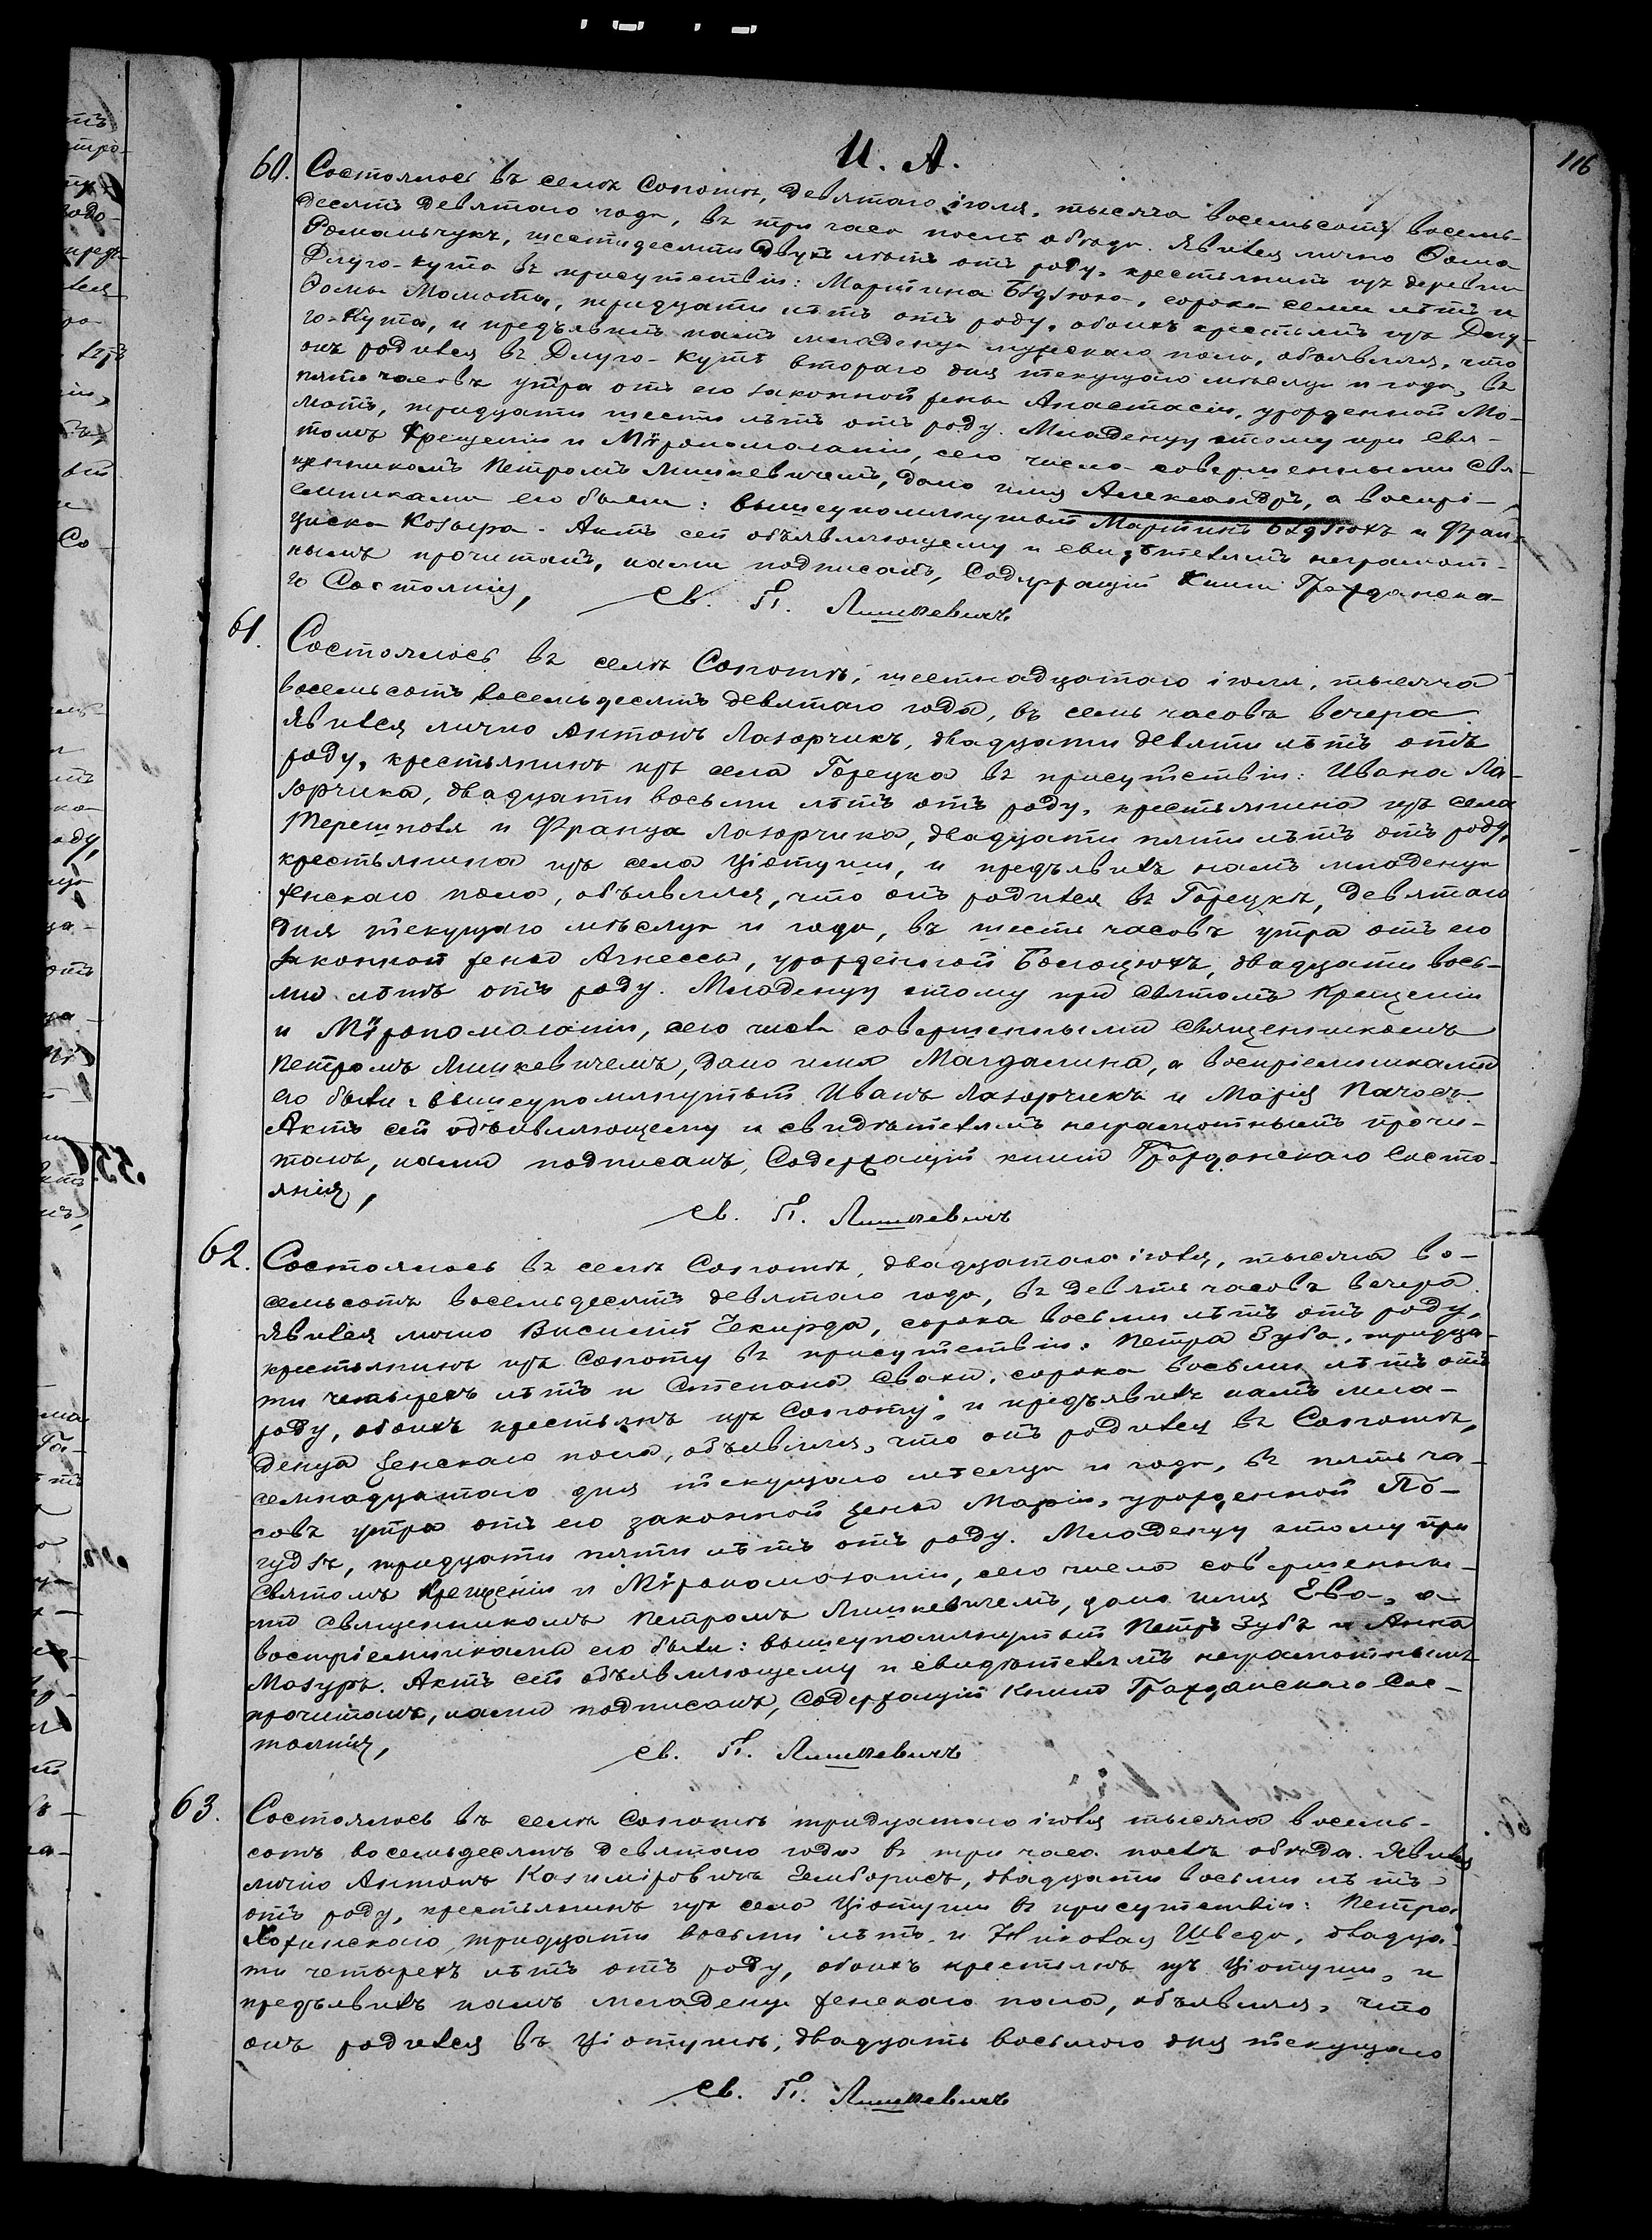 И. А.
116
60. Состоялось въ селѣ Сопотѣ, девятаго іюля, тысяча восемьсотъ восемь-
десятъ девятаго года, въ три часа послѣ обѣда. Явился лично Ѳома
Романчукъ, шестидесяти двухъ лѣтъ отъ роду, крестьянинъ изъ деревни
Длуго-Кута въ присутствіи: Мартина сорока семи лѣтъ и
Ѳомы Момота, тридцати лѣтъ отъ роду, обоихъ крестьянъ изъ Длу-
го-Кута, и предъявилъ намъ младенца мужескаго пола, объявляя, что
онъ родился въ Длуго-Кутѣ втораго дня текущаго мѣсяца и года, въ
пять часовъ утра отъ его законной жены Анастасіи, урожденной Мо-
мотъ, тридцати шести лѣтъ отъ роду. Младенцу этому при Свя-
томъ Крещеніи и Мѵропомазаніи, сего числа совершенными Свя-
щенникомъ Петромъ Лишкевичемъ, дано имя Александръ, а воспрі-
емниками его были: вышеупомянутый Мартинъ и Фран-
циска Козыра. Актъ сей объявляющему и свидѣтелямъ неграмот-
нымъ прочитанъ, нами подписанъ, Содержащій Книги Гражданска-
го Состоянія,
Св. П. Лишкевичъ
61. Состоялось въ селѣ Сопотѣ, шестнадцатаго іюля, тысяча
восемьсотъ восемьдесятъ девятаго года, въ семь часовъ вечера.
Явился лично Антонъ Лазорчикъ, двадцати девяти лѣтъ отъ
роду, крестьянинъ изъ села Горецка въ присутствіи: Ивана Ла-
зорчика, двадцати восьми лѣтъ отъ роду, крестьянина изъ села
Терешполя и Франца Лазорчика, двадцати пяти лѣтъ отъ роду,
крестьянина изъ села Ціотуши, и предъявилъ намъ младенца
женскаго пола, объявляя, что онъ родился въ Горецкѣ, девятаго
дня текущаго мѣсяца и года, въ шесть часовъ утра отъ его
законной жены Агнессы, урожденной двадцати вось-
ми лѣтъ отъ роду. Младенцу этому при Святомъ Крещеніи
и Мѵропомазаніи, сего числа совершенными Священникомъ
Петромъ Лишкевичемъ, дано имя Магдалина, а воспріемниками
его были: вышеупомянутый Иванъ Лазорчикъ и Марія Пачосъ
Актъ сей объявляющему и свидѣтелямъ неграмотнымъ прочи-
танъ, нами подписанъ, Содержащій книги Гражданскаго Состо-
янія,
Св. П. Лишкевичъ
62. Состоялось въ селѣ Сопотѣ, двадцатаго іюля, тысяча во-
семьсотъ восемьдесятъ девятаго года, въ девять часовъ вечера.
Явился лично Викентій Чекирда, сорока восьми лѣтъ отъ роду,
крестьянинъ изъ Сопоту въ присутствіи: Петра Зуба, тридца-
ти четырехъ лѣтъ и Степана сорока восьми лѣтъ отъ
роду, обоихъ крестьянъ изъ Сопоту, и предъявилъ намъ мла-
денца женскаго пола, объявляя, что онъ родился въ Сопотѣ,
семнадцатаго дня текущаго мѣсяца и года, въ пять ча-
совъ утра отъ его законной жены Маріи, урожденной
тридцати пяти лѣтъ отъ роду. Младенцу этому при
Святомъ Крещеніи и Мѵропомазаніи, сего числа совершенны-
ми Священникомъ Петромъ Лишкевичемъ, дано имя Ева, а
воспріемниками его были: вышеупомянутый Петръ Зубъ и Анна
Мазуръ. Актъ сей объявляющему и свидѣтелямъ неграмотнымъ
прочитанъ, нами подписанъ, Содержащій Книги Гражданскаго Сос-
тоянія,
Св. П. Лишкевичъ
63. Состоялось въ селѣ Сопотѣ тридцатаго іюля тысяча восемь-
сотъ восемьдесятъ девятаго года въ три часа послѣ обѣда. Явился
лично Антонъ Казиміровичъ двадцати восьми лѣтъ
отъ роду, крестьянинъ изъ села Ціотуши въ присутствіи: Петра
тридцати восьми лѣтъ, и Николая Шведа, двадца-
ти четырехъ лѣтъ отъ роду, обоихъ крестьянъ изъ Ціотуши, и
предъявилъ намъ младенца женскаго пола, объявляя, что
онъ родился въ Ціотушѣ, двадцать восьмого дня текущаго
Св. П. Лишкевичъ